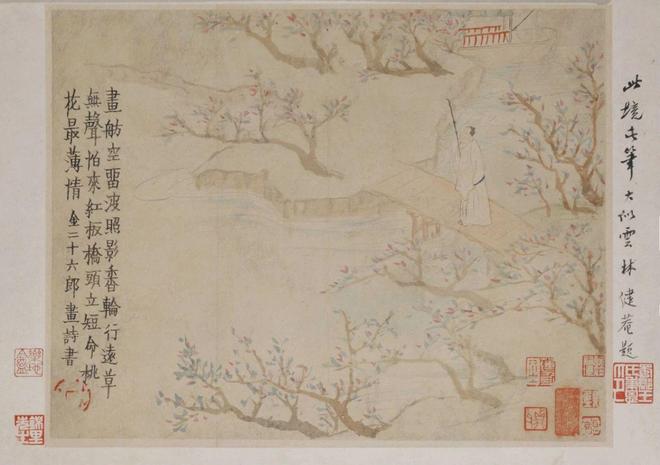 此境此筆大似雲林健菴題
畫舫空畱波照影香輪行遠草
無聲怕來紅板橋頭立短命桃
花最薄情 金二十六郎畫詩書